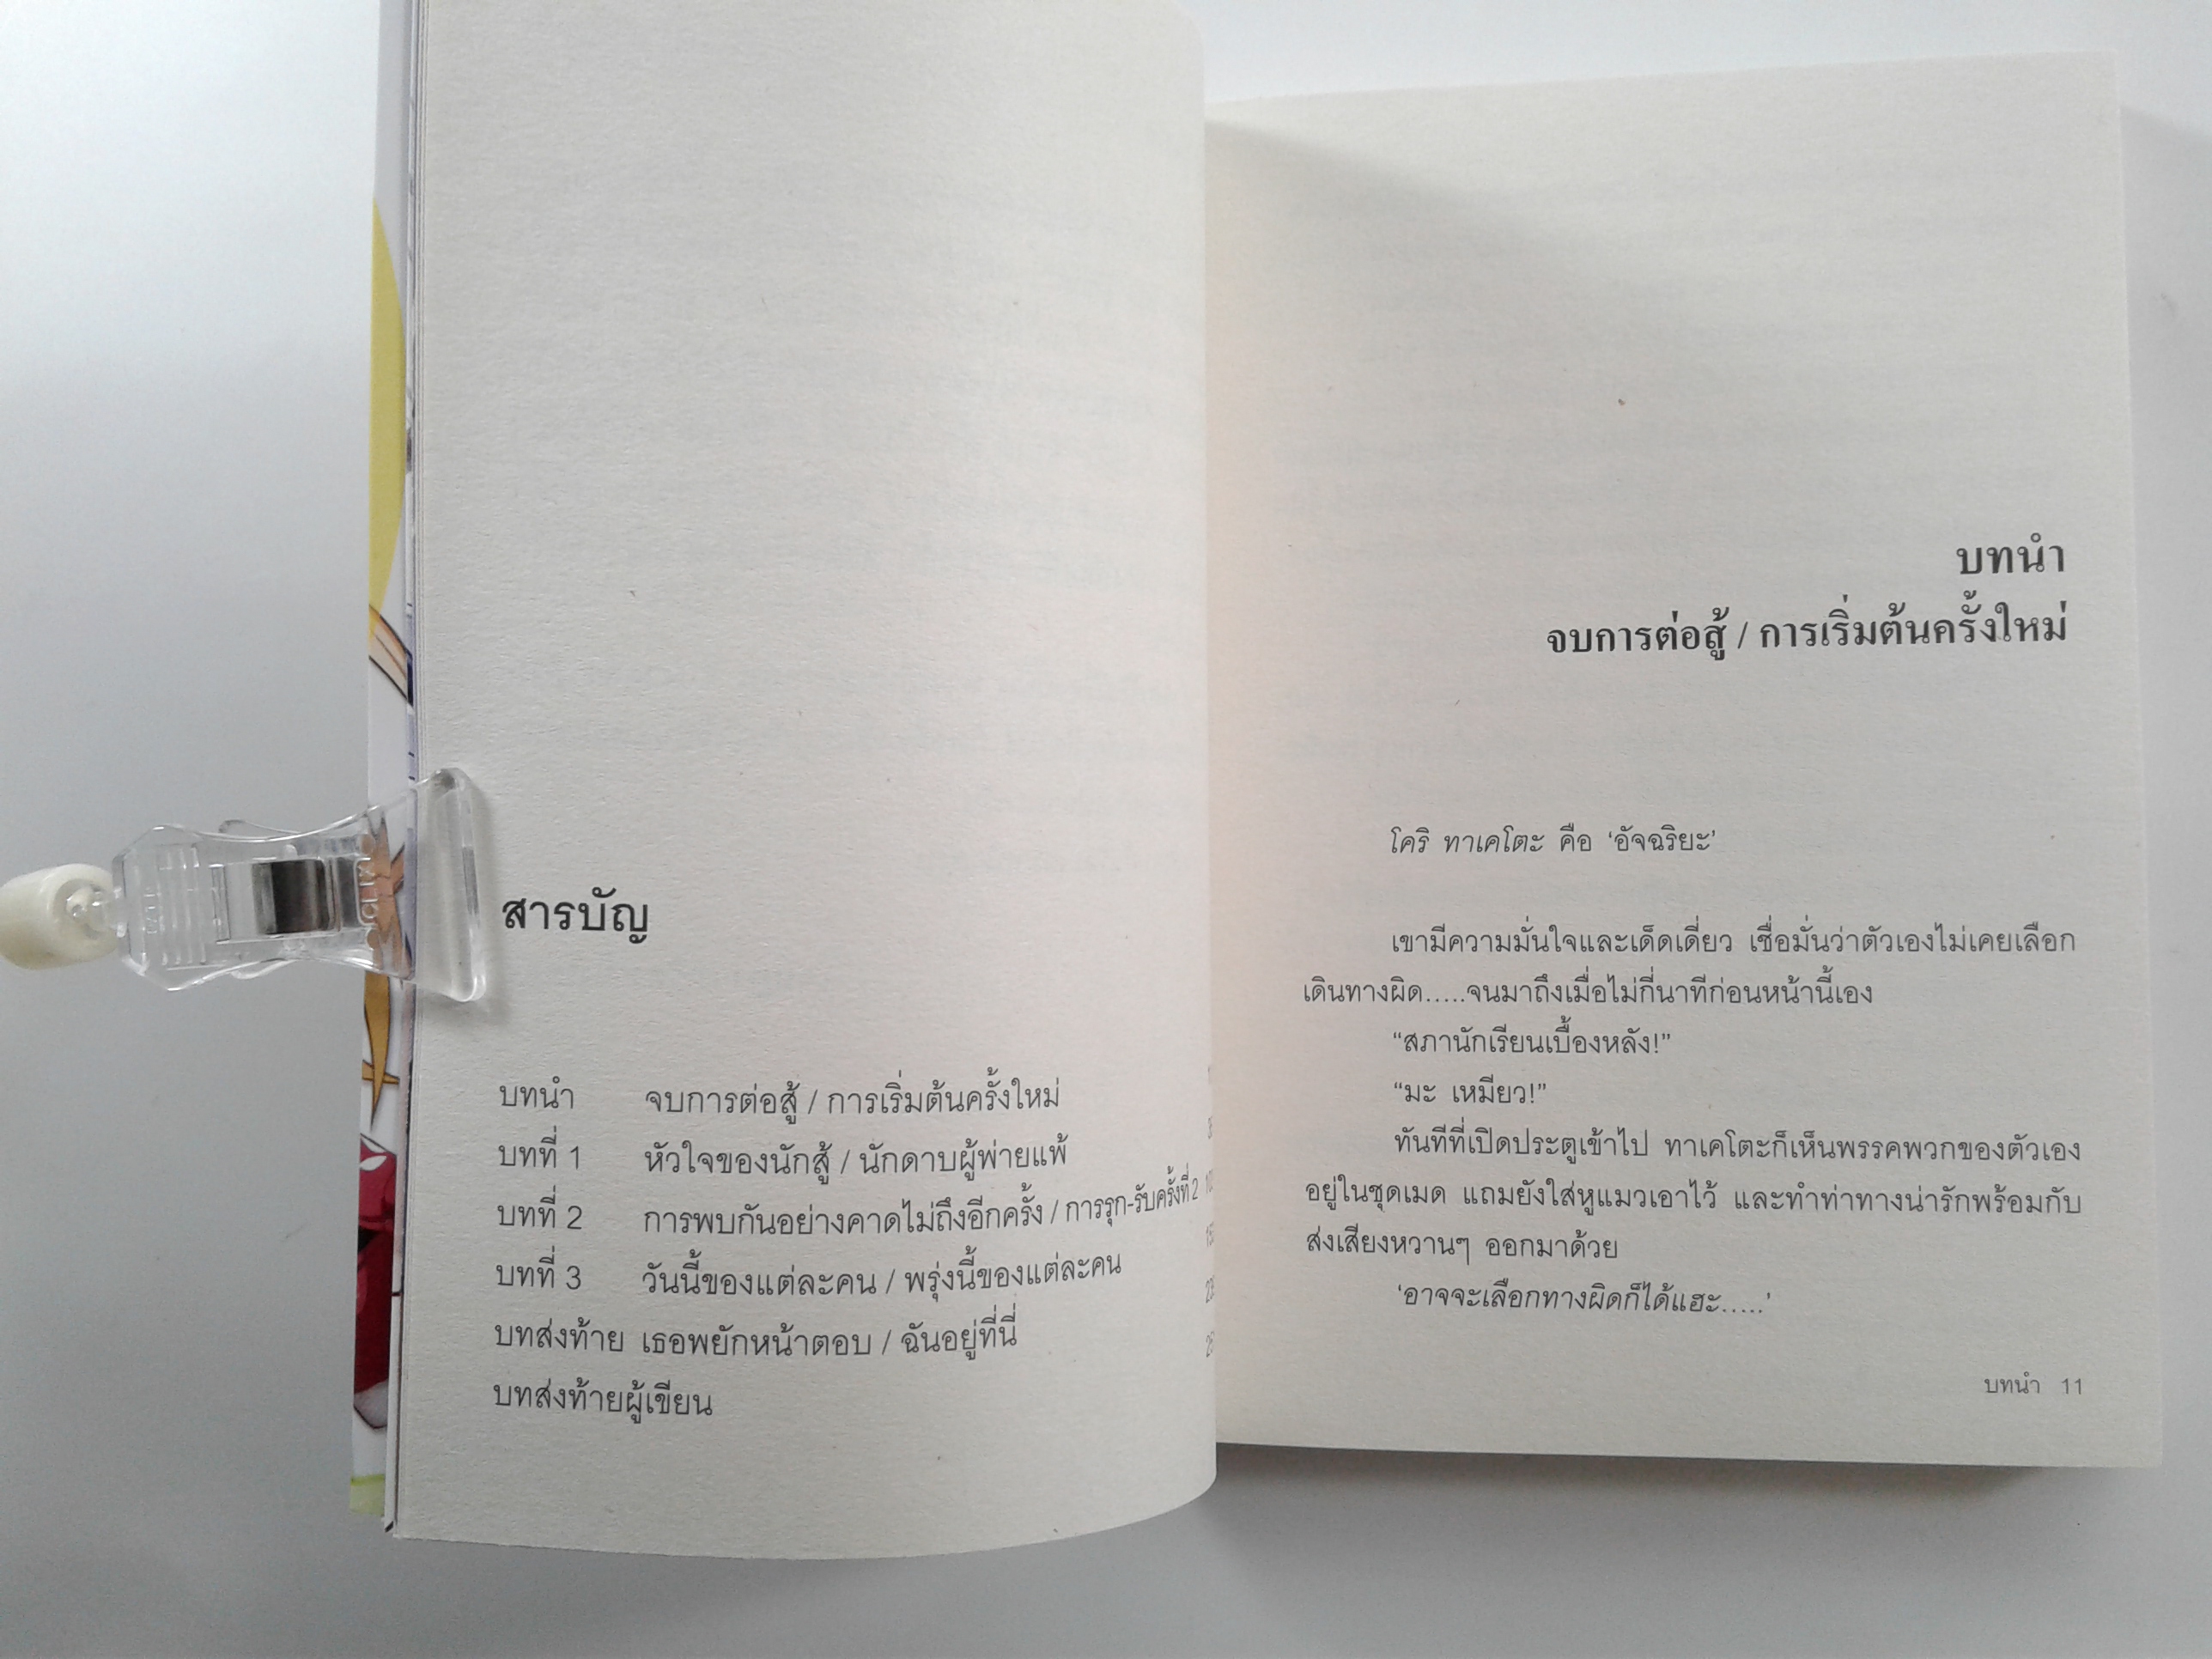 สารบัญ
บทนำ จบการต่อสู้ / การเริ่มต้นครั้งใหม่
บทที่ 1 หัวใจของนักสู้ / นักดาบผู้พ่ายแพ้
บทที่ 2 การพบกันอย่างคาดไม่ถึงอีกครั้ง / การรุก-รับครั้งที่ 2
บทที่ 3 วันนี้ของแต่ละคน / พรุ่งนี้ของแต่ละคน
บทส่งท้าย เธอพยักหน้าตอบ / ฉันอยู่ที่นี่
บทส่งท้ายผู้เขียน
บทนำ
จบการต่อสู้ / การเริ่มต้นครั้งใหม่
โคริ ทาเคโตะ คือ ‘อัจฉริยะ’
เขามีความมั่นใจและเด็ดเดี่ยว เชื่อมั่นว่าตัวเองไม่เคยเลือก
เดินทางผิด.....จนมาถึงเมื่อไม่กี่นาทีก่อนหน้านี้เอง
“สภานักเรียนเบื้องหลัง!”
“มะ เหมียว!”
ทันทีที่เปิดประตูเข้าไป ทาเคโตะก็เห็นพรรคพวกของตัวเอง
อยู่ในชุดเมด แถมยังใส่หูแมวเอาไว้ และทำท่าทางน่ารักพร้อมกับ
ส่งเสียงหวานๆ ออกมาด้วย
‘อาจจะเลือกทางผิดก็ได้แฮะ.....’
บทนำ 11